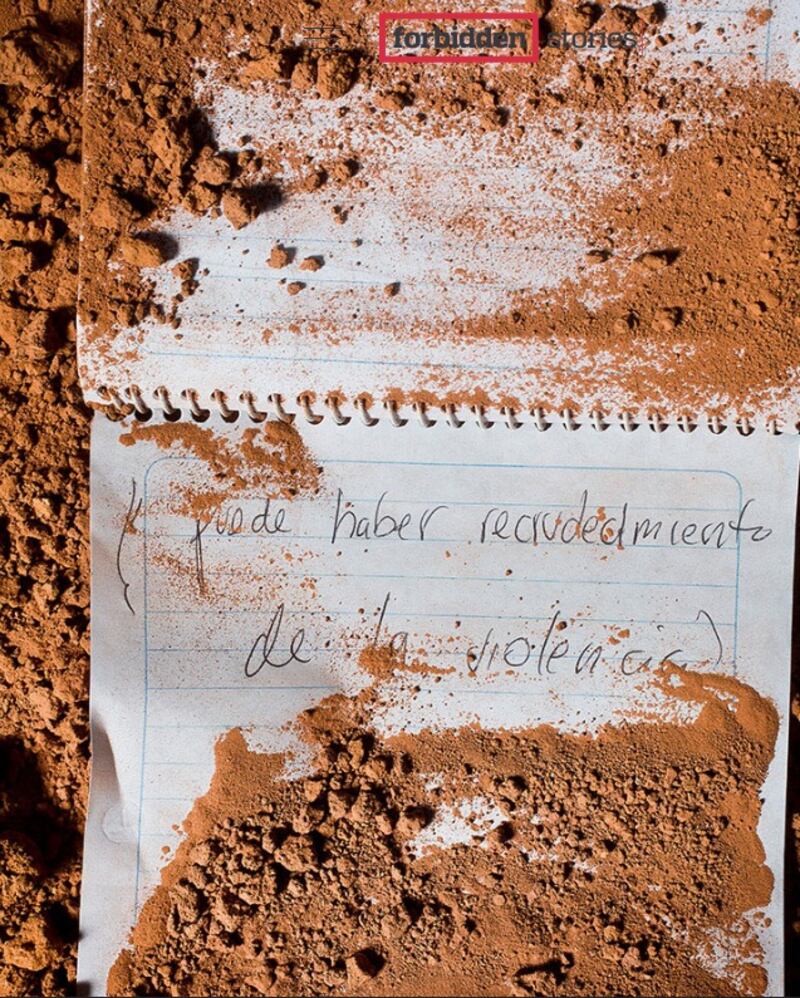 forbidden stories
(puede haber recrudecimiento
de la violencia)